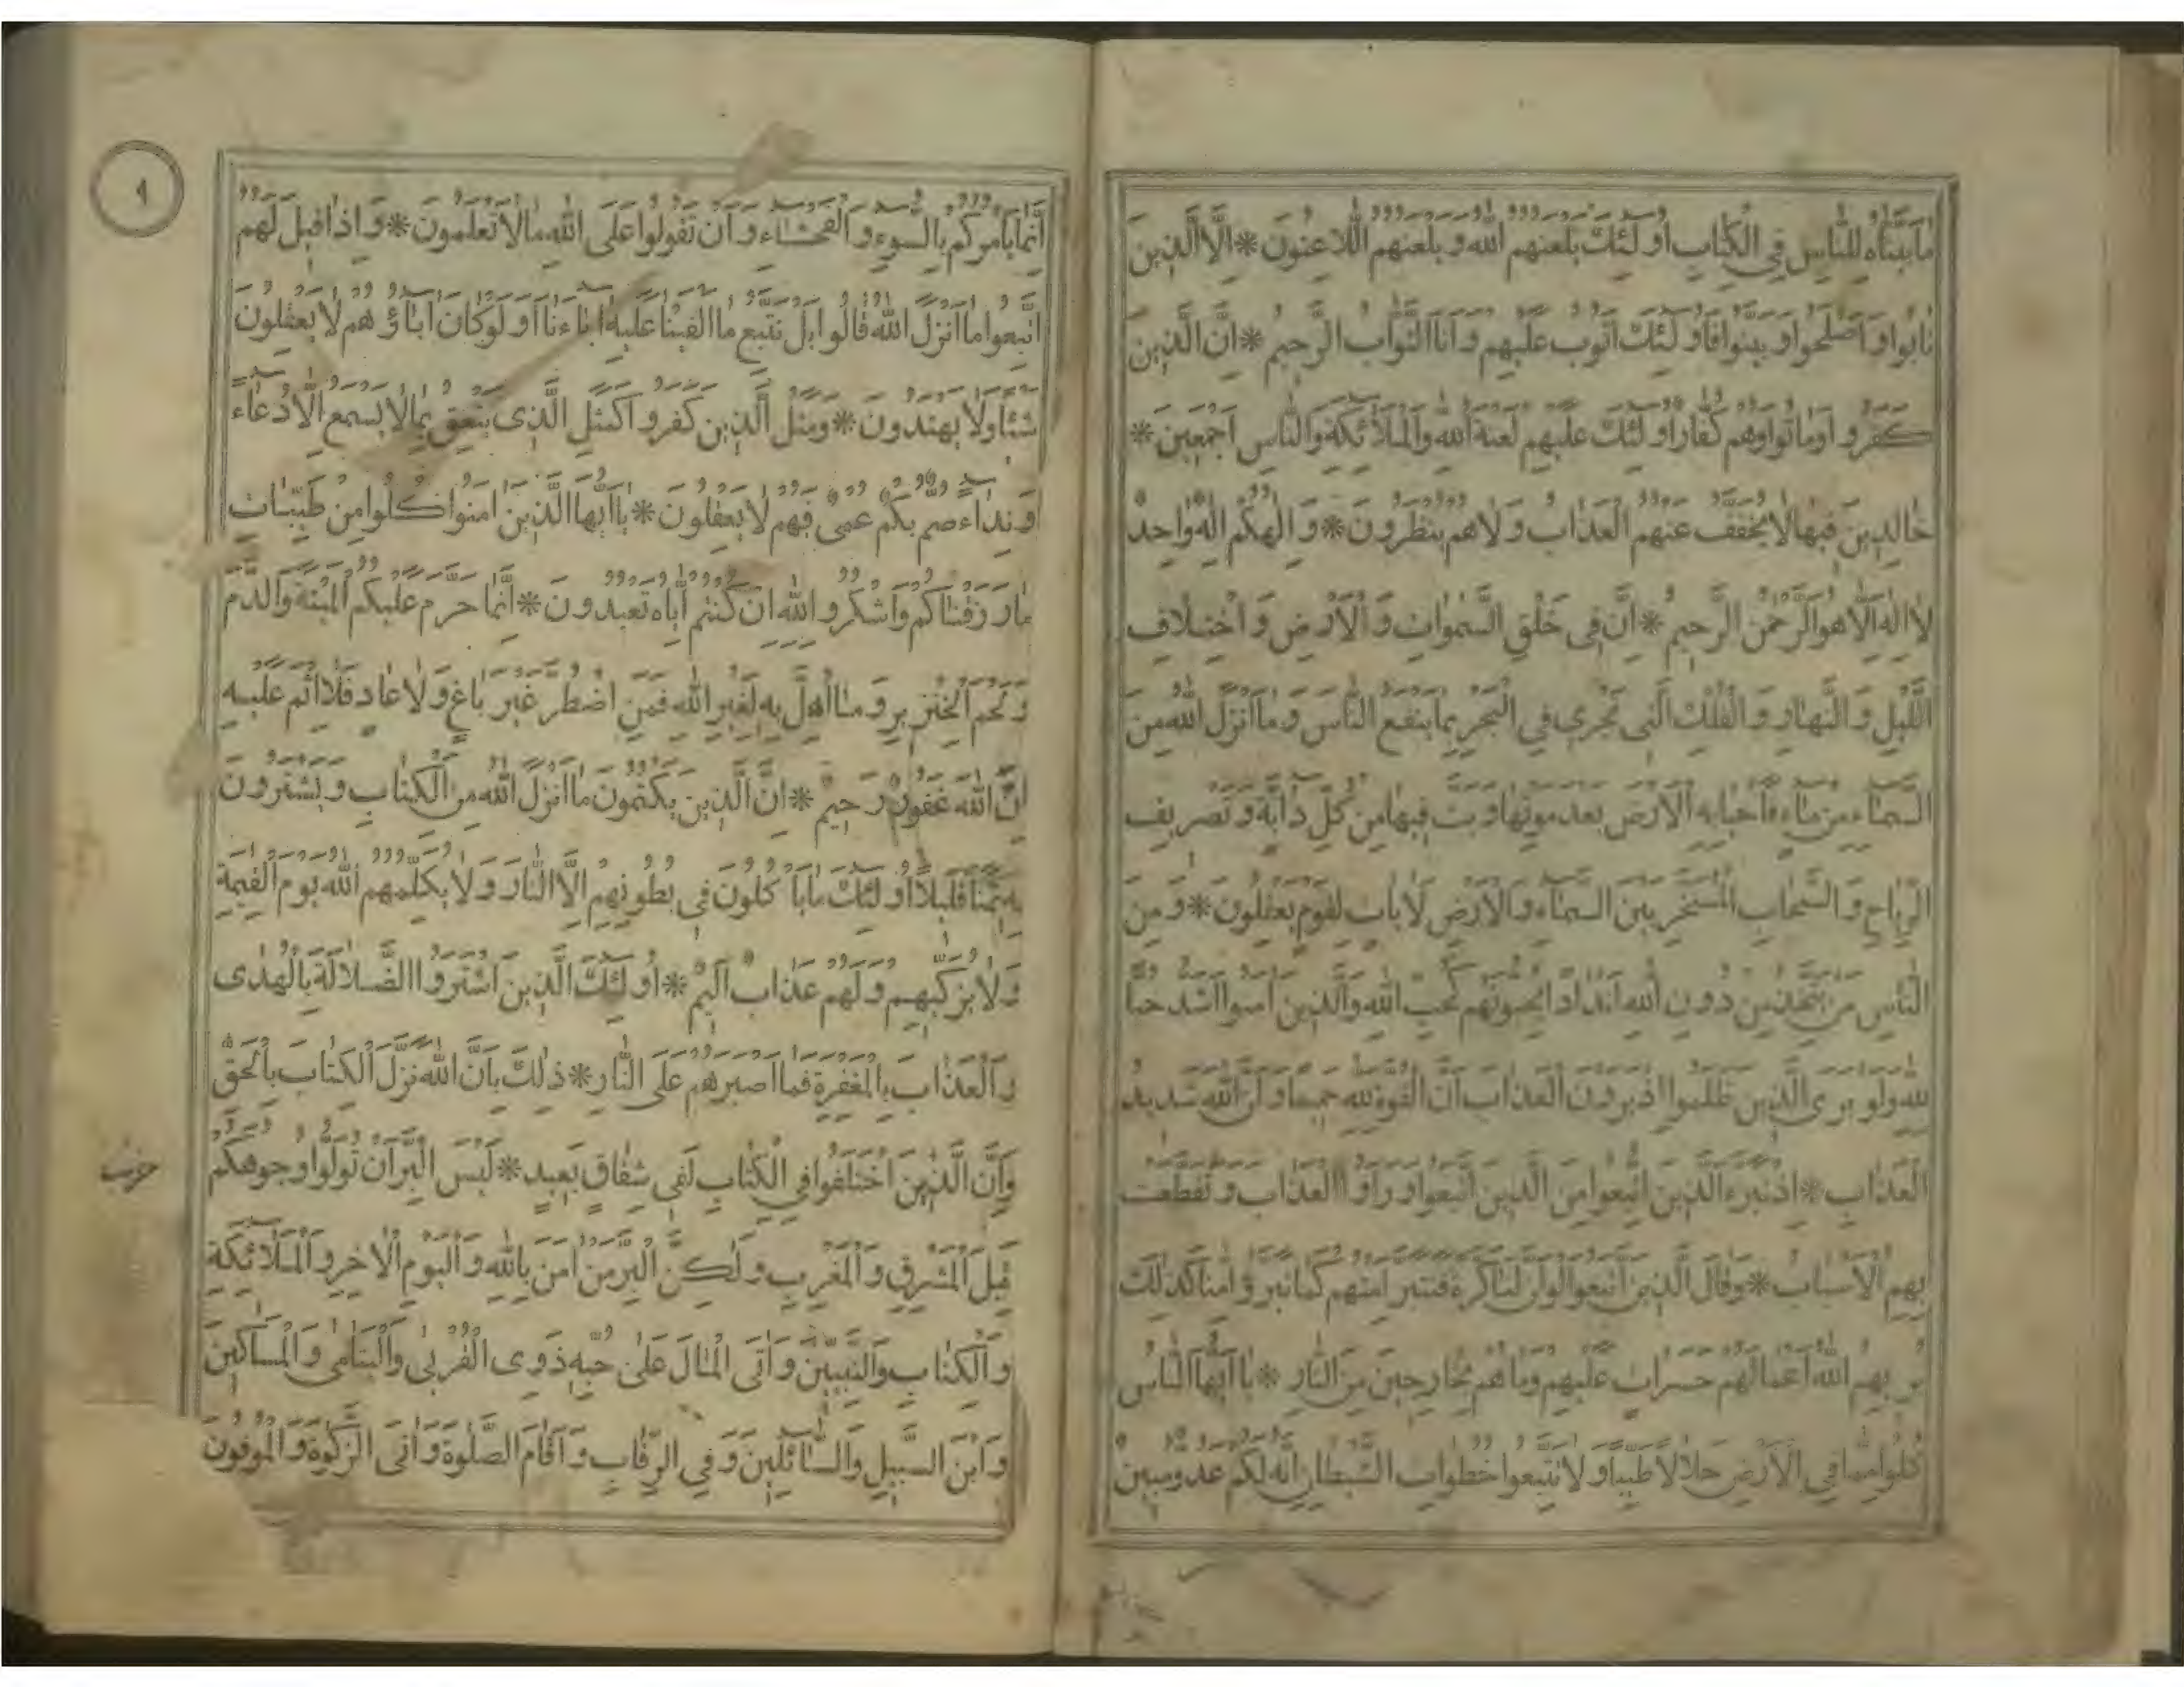 مَا بَيَّنَّاهُ لِلنَّاسِ فِي الْكِتَابِ أُولَئِكَ يَلْعَنُهُمُ اللّٰهُ وَيَلْعَنُهُمُ اللَّاعِنُونَ * إِلَّا الَّذِينَ
تَابُوا وَأَصْلَحُوا وَبَيَّنُوا فَأُولَئِكَ أَتُوبُ عَلَيْهِمْ وَأَنَا التَّوَّابُ الرَّحِيمُ * إِنَّ الَّذِينَ
كَفَرُوا وَمَاتُوا وَهُمْ كُفَّارٌ أُولَئِكَ عَلَيْهِمْ لَعْنَةُ اللّٰهِ وَالْمَلَائِكَةِ وَالنَّاسِ أَجْمَعِينَ *
خَالِدِينَ فِيهَا لَا يُخَفَّفُ عَنْهُمُ الْعَذَابُ وَلَا هُمْ يُنْظَرُونَ * وَإِلَهُكُمْ إِلَهٌ وَاحِدٌ
لَا إِلَهَ إِلَّا هُوَ الرَّحْمٰنُ الرَّحِيمُ * إِنَّ فِي خَلْقِ السَّمٰوَاتِ وَالْأَرْضِ وَاخْتِلَافِ
اللَّيْلِ وَالنَّهَارِ وَالْفُلْكِ الَّتِي تَجْرِي فِي الْبَحْرِ بِمَا يَنْفَعُ النَّاسَ وَمَا أَنْزَلَ اللّٰهُ مِنَ
السَّمَاءِ مِنْ مَاءٍ فَأَحْيَا بِهِ الْأَرْضَ بَعْدَ مَوْتِهَا وَبَثَّ فِيهَا مِنْ كُلِّ دَابَّةٍ وَتَصْرِيفِ
الرِّيَاحِ وَالسَّحَابِ الْمُسَخَّرِ بَيْنَ السَّمَاءِ وَالْأَرْضِ لَآيَاتٍ لِقَوْمٍ يَعْقِلُونَ * وَمِنَ
النَّاسِ مَنْ يَتَّخِذُ مِنْ دُونِ اللّٰهِ أَنْدَادًا يُحِبُّونَهُمْ كَحُبِّ اللّٰهِ وَالَّذِينَ آمَنُوا أَشَدُّ حُبًّا
لِلّٰهِ وَلَوْ يَرَى الَّذِينَ ظَلَمُوا إِذْ يَرَوْنَ الْعَذَابَ أَنَّ الْقُوَّةَ لِلّٰهِ جَمِيعًا وَأَنَّ اللّٰهَ شَدِيدُ
الْعَذَابِ * إِذْ تَبَرَّءَ الَّذِينَ اتُّبِعُوا مِنَ الَّذِينَ اتَّبَعُوا وَرَأَوُا الْعَذَابَ وَتَقَطَّعَتْ
بِهِمُ الْأَسْبَابُ * وَقَالَ الَّذِينَ اتَّبَعُوا لَوْ أَنَّ لَنَا كَرَّةً فَنَتَبَرَّءَ مِنْهُمْ كَمَا تَبَرَّؤُا مِنَّا كَذٰلِكَ
يُرِيهِمُ اللّٰهُ أَعْمَالَهُمْ حَسَرَاتٍ عَلَيْهِمْ وَمَا هُمْ بِخَارِجِينَ مِنَ النَّارِ * يَا أَيُّهَا النَّاسُ
كُلُوا مِمَّا فِي الْأَرْضِ حَلَالًا طَيِّبًا وَلَا تَتَّبِعُوا خُطُوَاتِ الشَّيْطَانِ إِنَّهُ لَكُمْ عَدُوٌّ مُبِينٌ
إِنَّمَا يَأْمُرُكُمْ بِالسُّوءِ وَالْفَحْشَاءِ وَأَنْ تَقُولُوا عَلَى اللّٰهِ مَا لَا تَعْلَمُونَ * وَإِذَا قِيلَ لَهُمُ
اتَّبِعُوا مَا أَنْزَلَ اللّٰهُ قَالُوا بَلْ نَتَّبِعُ مَا أَلْفَيْنَا عَلَيْهِ آبَاءَنَا أَوَلَوْ كَانَ آبَاؤُهُمْ لَا يَعْقِلُونَ
شَيْئًا وَلَا يَهْتَدُونَ * وَمَثَلُ الَّذِينَ كَفَرُوا كَمَثَلِ الَّذِي يَنْعِقُ بِمَا لَا يَسْمَعُ إِلَّا دُعَاءً
وَنِدَاءً صُمٌّ بُكْمٌ عُمْيٌ فَهُمْ لَا يَعْقِلُونَ * يَا أَيُّهَا الَّذِينَ آمَنُوا كُلُوا مِنْ طَيِّبَاتِ
مَا رَزَقْنَاكُمْ وَاشْكُرُوا لِلّٰهِ إِنْ كُنْتُمْ إِيَّاهُ تَعْبُدُونَ * إِنَّمَا حَرَّمَ عَلَيْكُمُ الْمَيْتَةَ وَالدَّمَ
وَلَحْمَ الْخِنْزِيرِ وَمَا أُهِلَّ بِهِ لِغَيْرِ اللّٰهِ فَمَنِ اضْطُرَّ غَيْرَ بَاغٍ وَلَا عَادٍ فَلَا إِثْمَ عَلَيْهِ
إِنَّ اللّٰهَ غَفُورٌ رَحِيمٌ * إِنَّ الَّذِينَ يَكْتُمُونَ مَا أَنْزَلَ اللّٰهُ مِنَ الْكِتَابِ وَيَشْتَرُونَ
بِهِ ثَمَنًا قَلِيلًا أُولَئِكَ مَا يَأْكُلُونَ فِي بُطُونِهِمْ إِلَّا النَّارَ وَلَا يُكَلِّمُهُمُ اللّٰهُ يَوْمَ الْقِيٰمَةِ
وَلَا يُزَكِّيهِمْ وَلَهُمْ عَذَابٌ أَلِيمٌ * أُولَئِكَ الَّذِينَ اشْتَرَوُا الضَّلَالَةَ بِالْهُدَى
وَالْعَذَابَ بِالْمَغْفِرَةِ فَمَا أَصْبَرَهُمْ عَلَى النَّارِ * ذٰلِكَ بِأَنَّ اللّٰهَ نَزَّلَ الْكِتَابَ بِالْحَقِّ
وَإِنَّ الَّذِينَ اخْتَلَفُوا فِي الْكِتَابِ لَفِي شِقَاقٍ بَعِيدٍ * لَيْسَ الْبِرَّ أَنْ تُوَلُّوا وُجُوهَكُمْ
قِبَلَ الْمَشْرِقِ وَالْمَغْرِبِ وَلٰكِنَّ الْبِرَّ مَنْ آمَنَ بِاللّٰهِ وَالْيَوْمِ الْآخِرِ وَالْمَلَائِكَةِ
وَالْكِتَابِ وَالنَّبِيِّينَ وَآتَى الْمَالَ عَلَى حُبِّهِ ذَوِي الْقُرْبَى وَالْيَتَامَى وَالْمَسَاكِينَ
وَابْنَ السَّبِيلِ وَالسَّائِلِينَ وَفِي الرِّقَابِ وَأَقَامَ الصَّلٰوةَ وَآتَى الزَّكٰوةَ وَالْمُوفُونَ
حزب